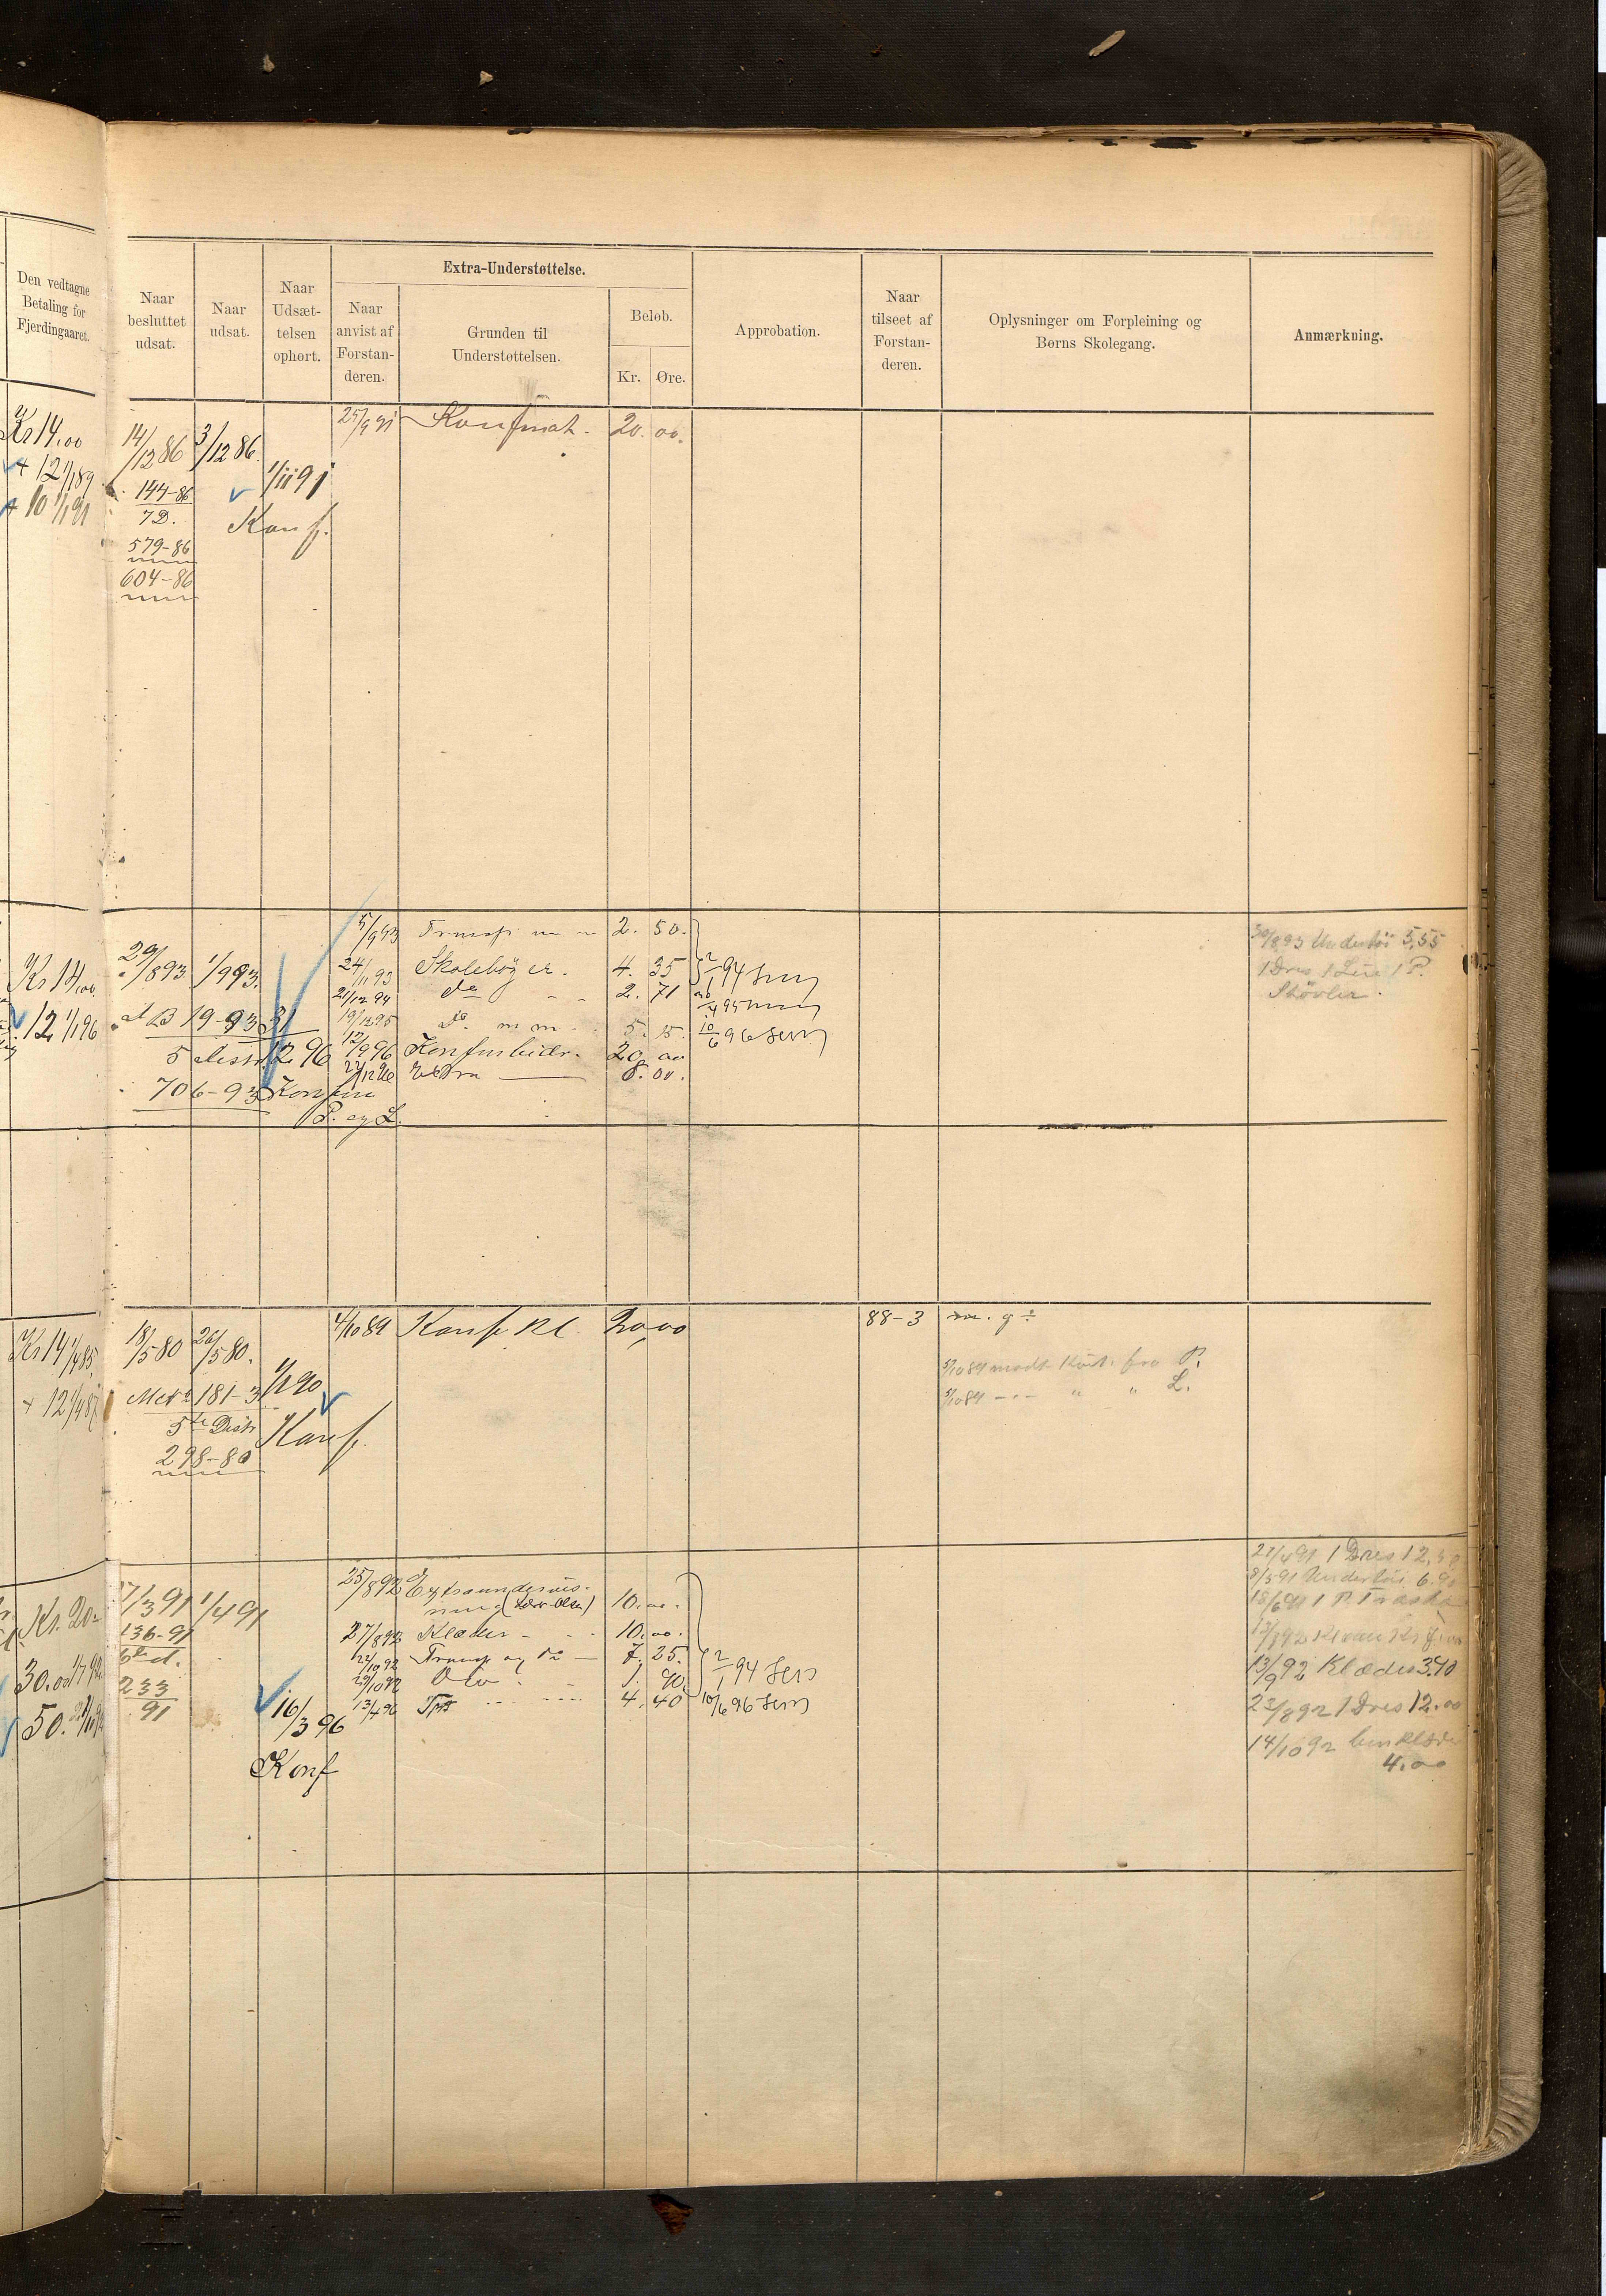 Den vedtagne
Betaling for
Fjerdingaaret.
Naar
besluttet
udsat.
Naar
udsat.
Naar
Udsæt-
telsen
ophørt.
Extra-Understøttelse.
Naar
anvist af
Forstan-
deren.
Grunden til
Understøttelsen.
Beløb.
Kr.
Øre.
Approbation.
Naar
tilseet af
Forstan-
deren.
Oplysninger om Forpleining og
Børns Skolegang.
Anmærkning.
Kr 14.00
+ 12 1/1 89
+ 10 1/1 91
14/12 86
3/12 86.
1/11 91
144-86
7D.
Konf.
579-86
604-86
25/9 91 Konfmat. 20.00.
Kr 14.00
12 1/1 96
29/8 93
1/9 93.
19-93
31/12 96
5 distr.
706-93
Konfm
P. og L.
5/9 93 2. 50.
24/11 93 Skolebøger. 4. 35
21/12 94 do 2. 71
19/12 95 Do. m m. 5. 15.
12/9 96 Konfmbidr. 20. 00
22/12 96 Extra 8. 00.
2/1 94
10/6 96
30/8 93 Undertøi 5,55
1 Dres 1 Lue 1 P.
Støvler.
Kr 14 1/4 85.
+ 12 1/4 87
18/5 80
26/5 80.
181-3
1/1 90
5te Distr
298-80
Konf.
4/10 89 Konf. Kl. 20,00
88-3 m. g ÷
5/10 89 modt. Kvit. fra P.
5/10 89 -"- " " L.
Kr. 20-
30.00 1/7 92
50.
17/3 91
1/4 91
136-91
6te d.
233
91
16/3 96
Konf
25/8 92 Extraundervis-
ning 10. 00.
27/8 92 Klæder - 10. 00.
22/10 92 Transp og do - 7. 25.
29/10 92 1. 90.
13/4 96 4. 40
2/1 94
10/6 96
27/4 91 1 Dres 12,
8/5 91 Undertøi 6.90
18/6 91 1 P. Træsko
13/9 92 Klæder 3.90
23/8 92 1 Dres 12.00
14/10 92
4.00